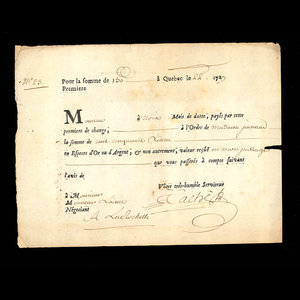 Pour la somme de 150 à Quebec le 22 17
Premiere
Monsieur à trois Mois de datte, payés par cette
premiere de change, à l'Ordre de
la somme de cent cinquante Livres
en Especes d'Or ou d'Argent, & non autrement, valeur reçüe en
que vous passerés à compte suivant
l'avis de
Votre très-humble Serviteur
à Monsieur
Monsieur
Négociant
A La Rochelle